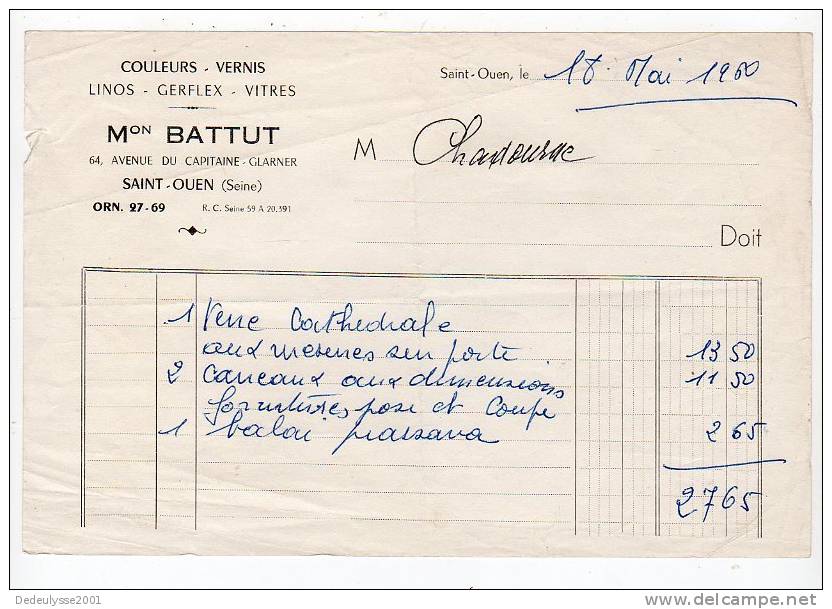 COULEURS - VERNIS
LINOS - GERFLEX - VITRES
Mon BATTUT
64, AVENUE DU CAPITAINE-GLARNER
SAINT-OUEN (Seine)
ORN. 27-69 R. C. Seine 59 A 20.391
Saint-Ouen, le 18 Mai 1960
M Chadourne
Doit
1 Verre Cathedrale
aux mesures sur porte 13 50
2 Carreaux aux dimensions 11 50
fournitures pose et Coupe
1 balai piassava 2 65
27 65
Dedeulysse2001
delcampe.net